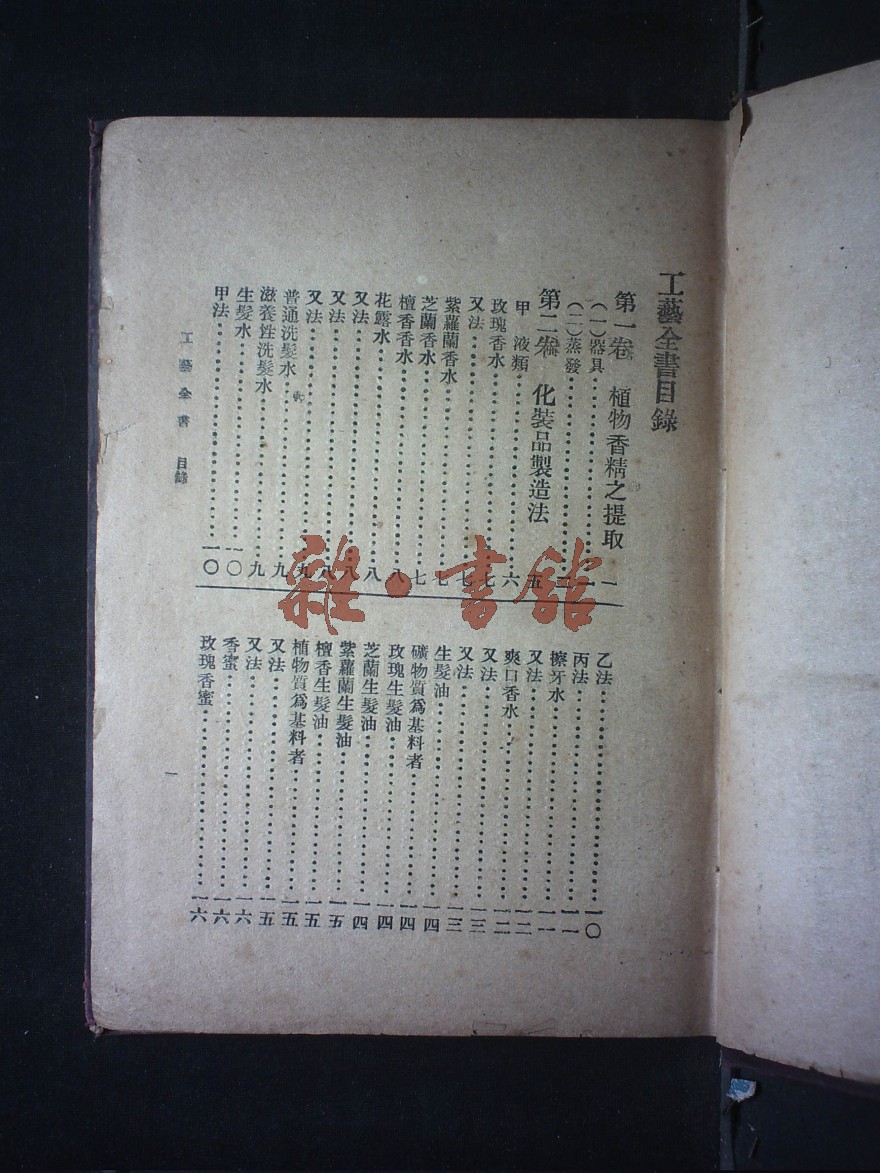 工藝全書目錄
第一卷 植物香精之提取 一
(一)器具……一
(二)蒸發……二
第二卷 化裝品製造法 五
甲 液類……六
玫瑰香水……七
又法……七
紫羅蘭香水……七
芝蘭香水……七
檀香香水……八
花露水……八
又法……八
又法……八
又法……九
普通洗髮水……九
滋養性洗髮水……九
生髮水……一〇
甲法……一〇
乙法……一〇
丙法……一一
擦牙水……一一
又法……一二
爽口香水……一二
又法……一三
又法……一三
生髮油……一四
礦物質爲基料者……一四
玫瑰生髮油……一四
芝蘭生髮油……一四
紫羅蘭生髮油……一五
檀香生髮油……一五
植物質爲基料者……一五
又法……一五
又法……一六
香蜜……一六
玫瑰香蜜……一六
工藝全書 目錄
一
雜·書館